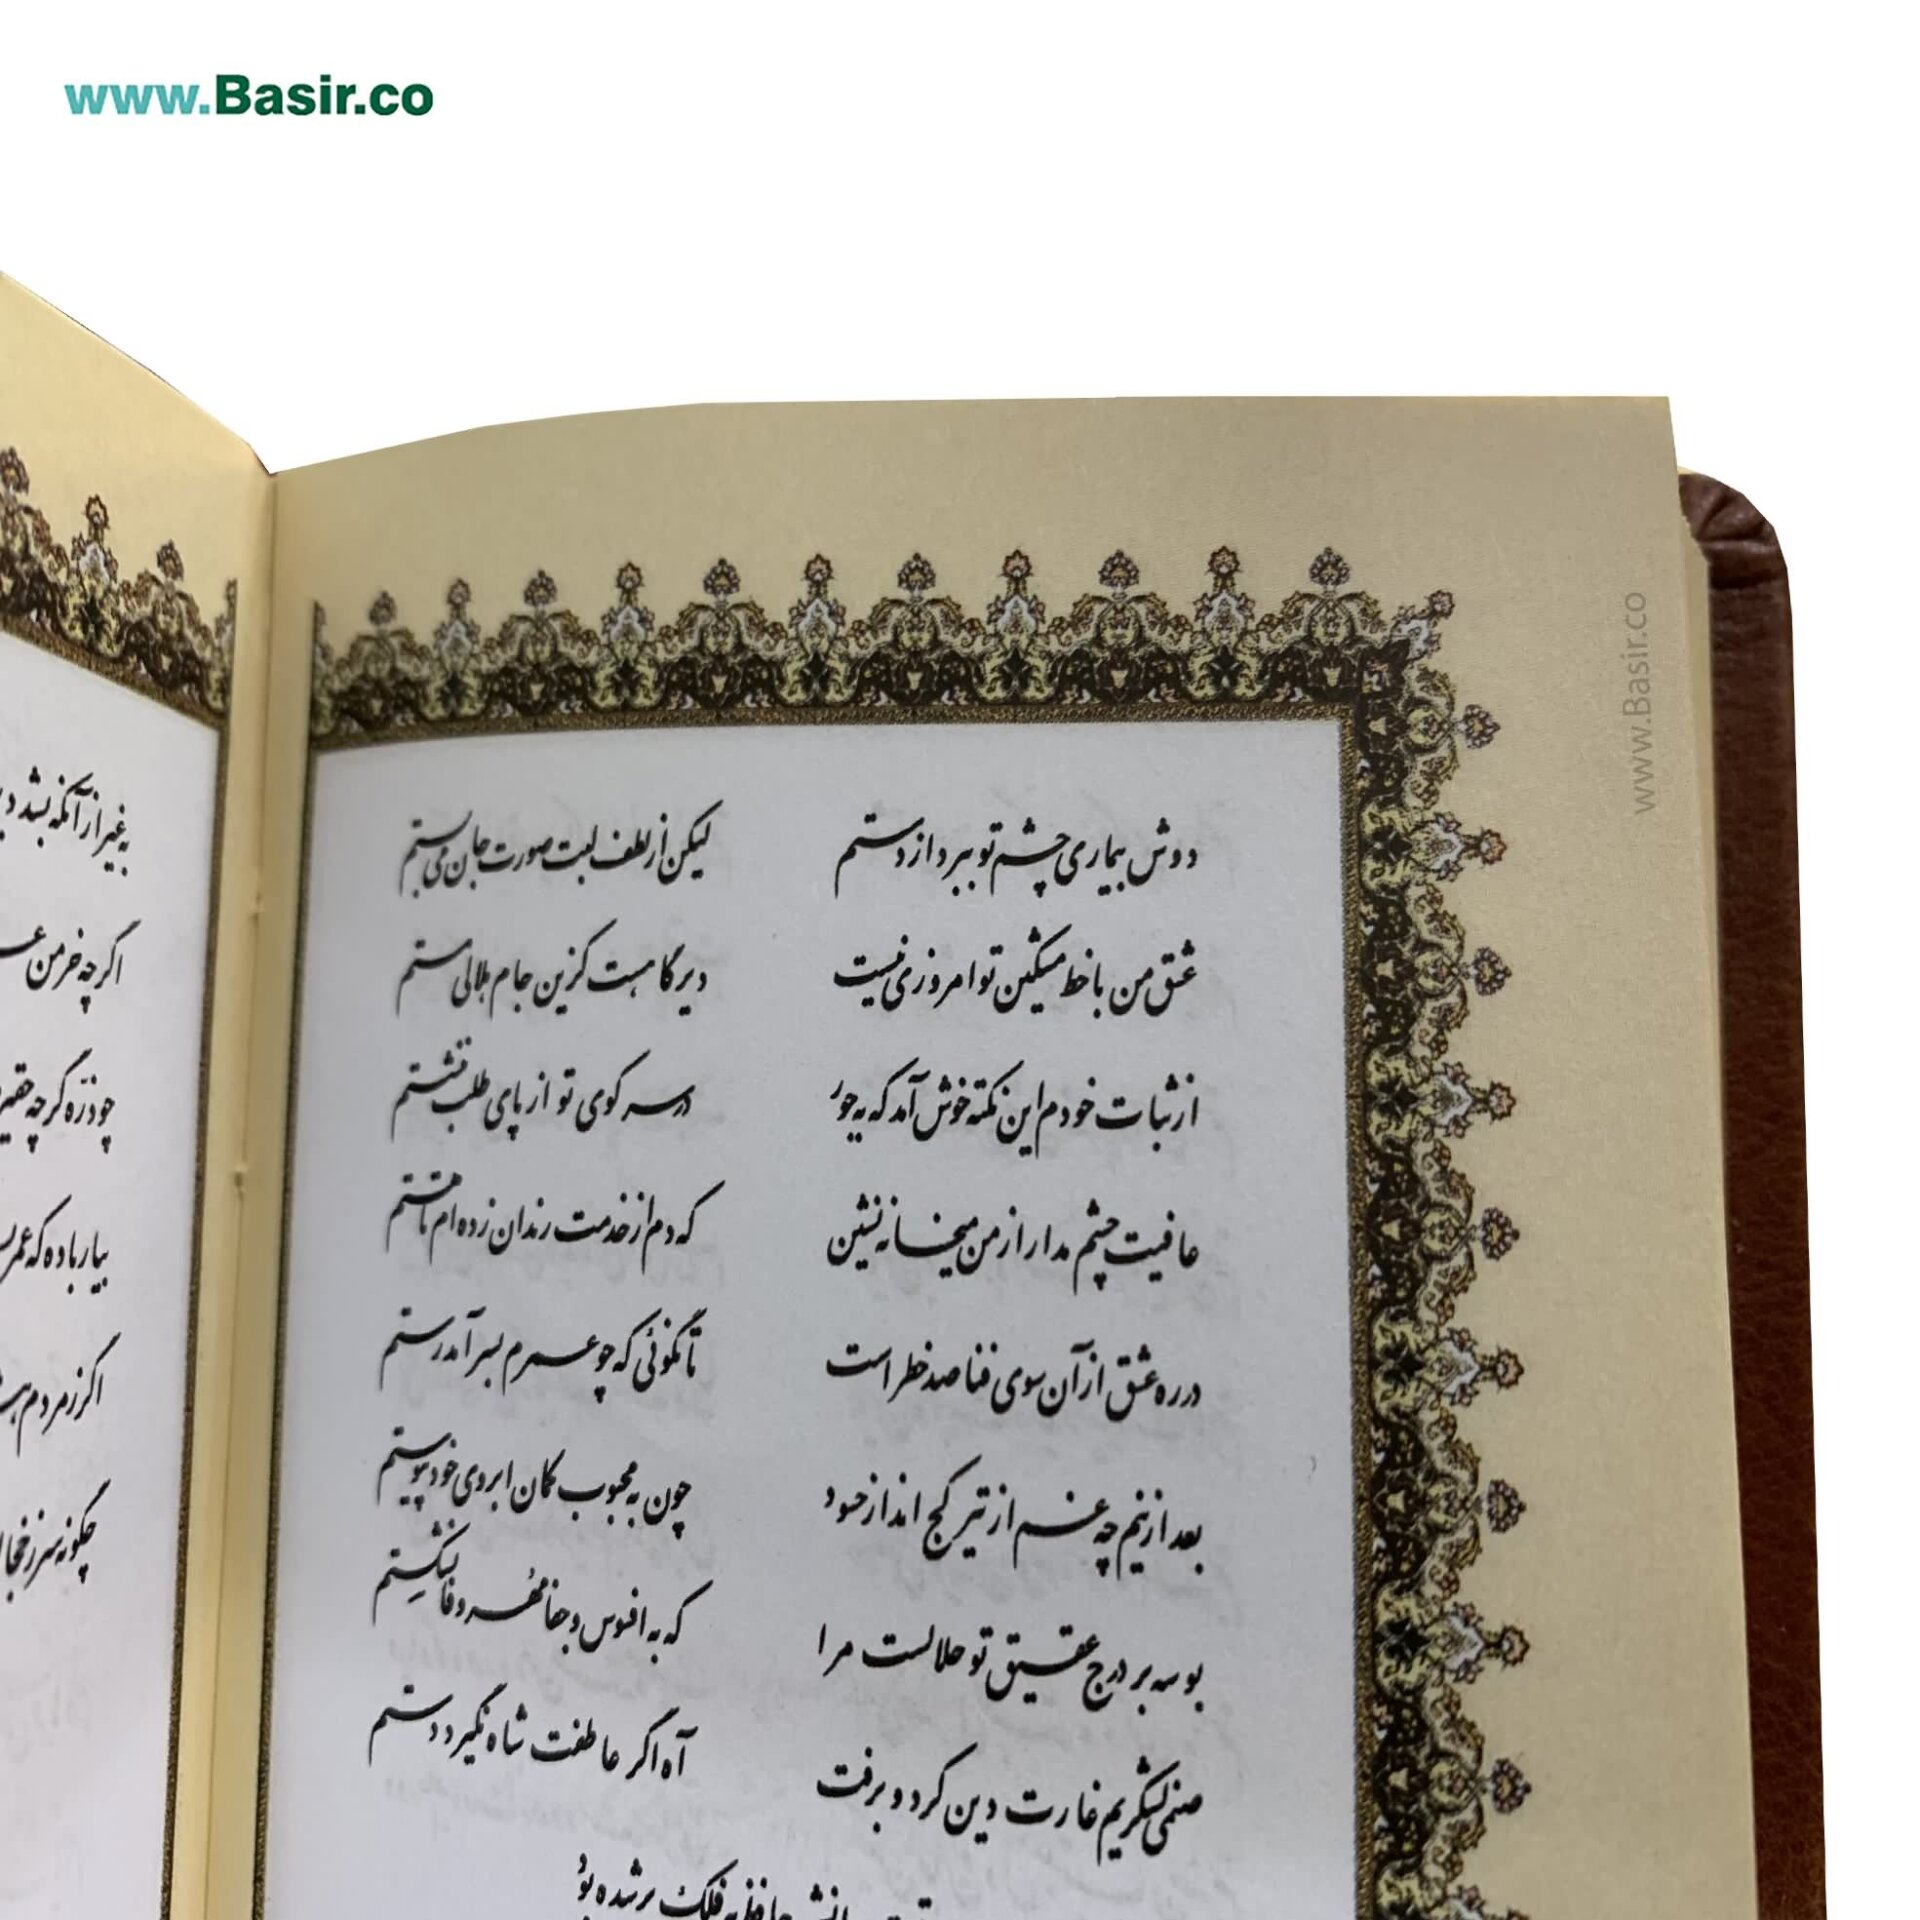 www.Basir.co
دوش بیماری چشم تو ببرد از دستم لیکن از لطف لبت صورت جان می بستم
عشق من با خط مشکین تو امروزی نیست دیرگاهست کزین جام هلالی مستم
از ثبات خودم این نکته خوش آمد که به جور در سر کوی تو از پای طلب ننشستم
عافیت چشم مدار از من میخانه نشین که دم از خدمت رندان زده ام تا هستم
در ره عشق از آن سوی فنا صد خطر است تا نگوئی که چو عمرم بسر آمد رستم
بعد ازینم چه غم از تیر کج انداز حسود چون به محبوب کمان ابروی خود پیوستم
بوسه بر درج عقیق تو حلالست مرا که به افسوس و جفا مهر وفا نشکستم
صنمی لشکریم غارت دین کرد و برفت آه اگر عاطفت شاه نگیرد دستم
حافظ به فلک بر شده بود
به غیر از آنکه بشد
اگر چه خرمن
چو ذره گر چه حقیر
بیار باده که
اگر ز مردم
چگونه سر ز
www.Basir.co